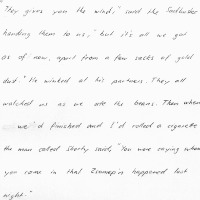 "They gives you the wind," said the Soilbuster
handing them to us, "but it's all we got
as of now, apart from a few sacks of gold
dust." He winked at his partners. They all
watched us as we ate the beans. Then when
we'd finished and I'd rolled a cigarette
the man called Shorty said, "You were saying when
you come in that Evamepin happened last
night."